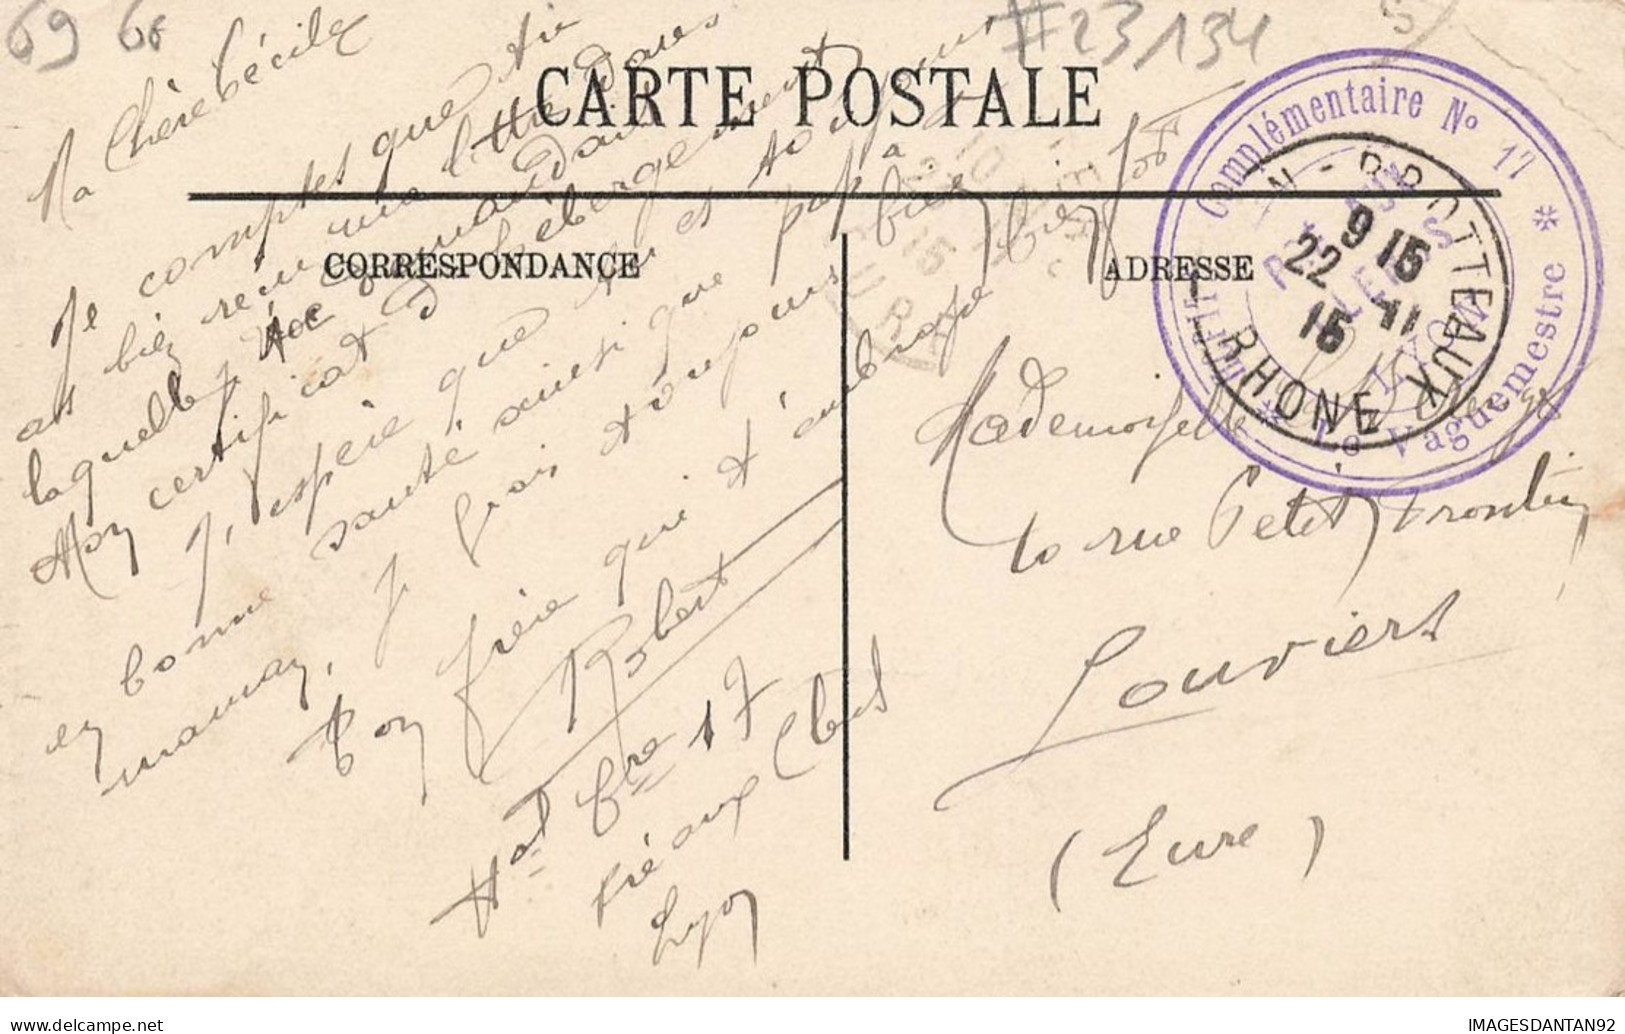 69 68
#23134
CARTE POSTALE
CORRESPONDANCE
ADRESSE
Ma Chère Cécile
Je comptes que tu
as bien reçu une lettre dans
laquelle je te demandais
Mon certificat d'hébergement
J'espère que tu es toujours
en bonne santé ainsi que papa et
maman, je frais toujours bien
Ton frère qui t'embrasse bien fort
Robert
Hal Cre 17
préaux
Lyon
Mademoiselle
10 rue Petit Trontin
Louviers
(Eure)
Complémentaire No 17
Le Vaguemestre
LYON
LYON - BROTTEAUX
9 15
22 - 11
15
RHONE
IMAGESDANTAN92
delcampe.net